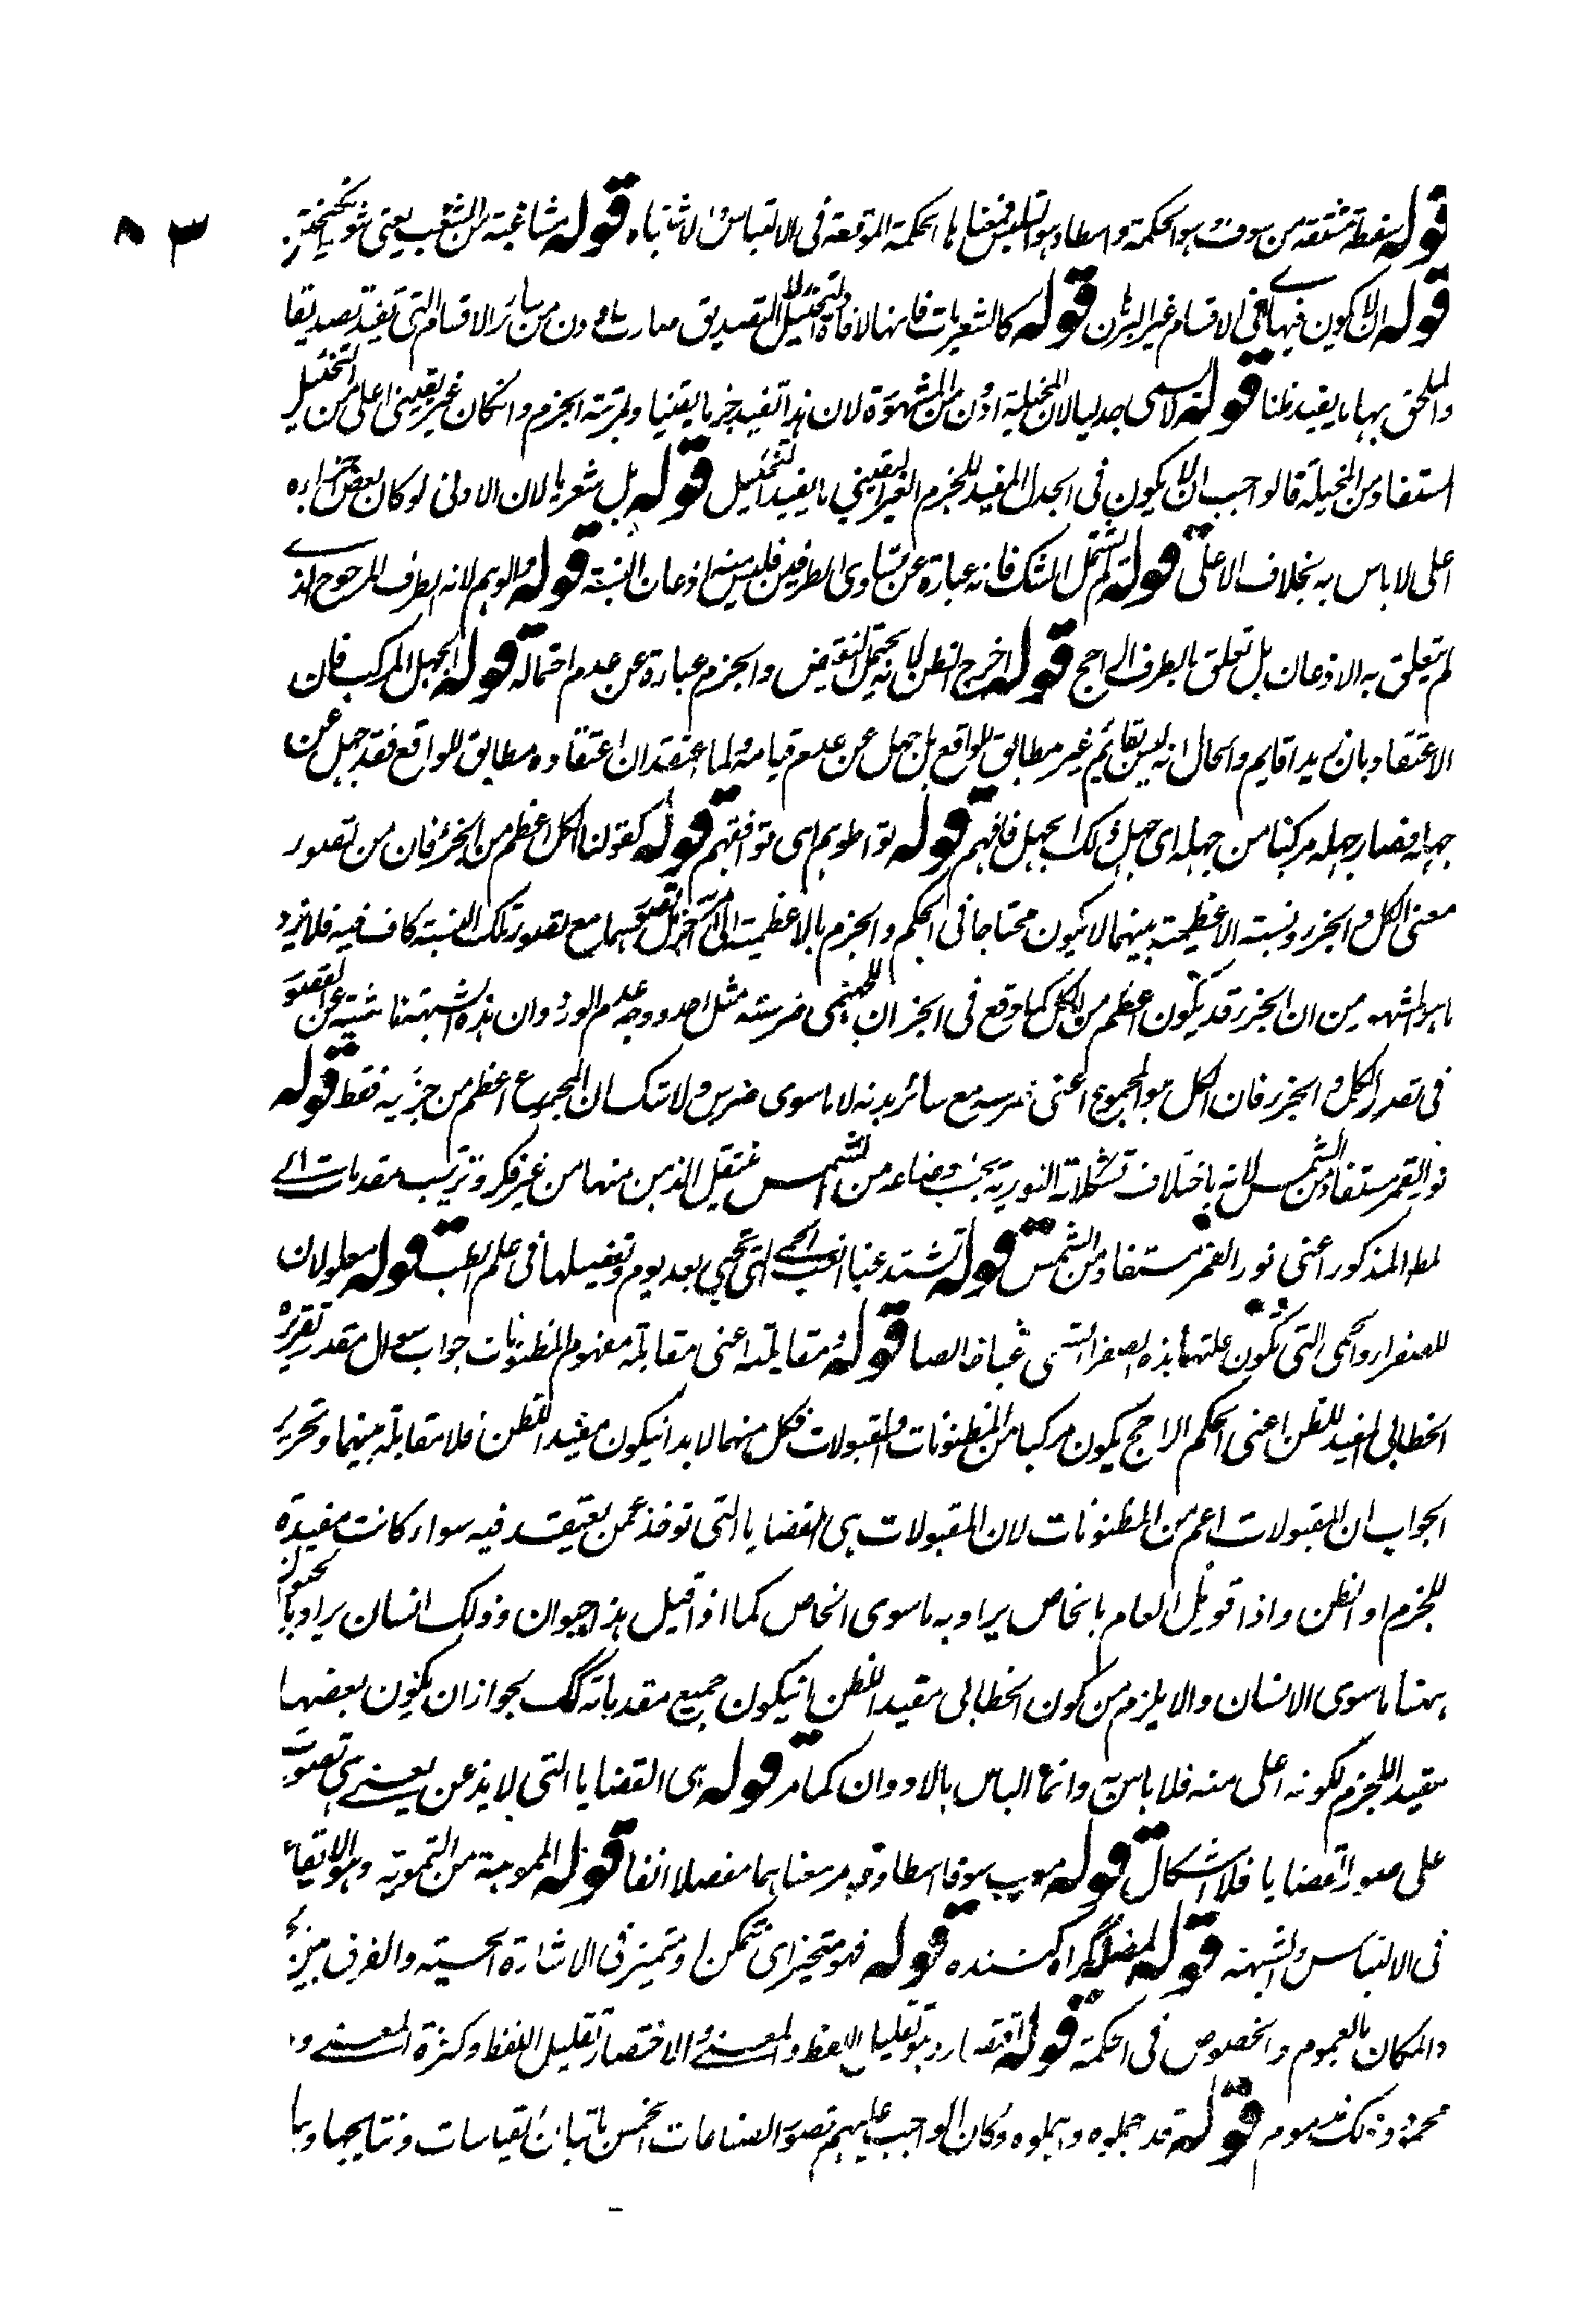 قوله سفطة مشتقة من سوف هو الحكمة واسطا وهو التلبيس فمعناها الحكمة الموقعة فى الالتباس والاشتباه قوله مشاغبة من الشغب يعنى شور
قوله ان لا يكون فيها اى فى الاقسام غير البرهان قوله كالشعريات فانها لافادة التخييل لا التصديق صارت ادون من سائر الاقسام التى تفيد تصديقا
والملحق بها ما يفيد ظنا قوله لا يسمى جدليا لان المخيلة ادون من المشهورة لان هذا تفيد جزما يقينيا ومرتبة الجزم وانكان غير يقينى اعلى من التخييل
المستفاد من المخيلة فالواجب ان لا يكون فى الجدل المفيد للجزم الغير اليقينى ما يفيد التخييل قوله بل شعريا لان الادنى لو كان بعض اجزاءه
اعلى لا باس به بخلاف الاعلى قوله لم يشتمل الشك فانه عبارة عن تساوى الطرفين فليس فيه اذعان النسبة قوله والوهم لانه الطرف المرجوح الذى
لم يتعلق به الاذعان بل تعلق بالطرف الراجح قوله اخرج الظن لانه يحتمل النقيض والجزم عبارة عن عدم احتماله قوله الجهل المركب فان
الاعتقاد بان زيدا قايم والحال انه ليس بقايم غير مطابق للواقع بل جهل عن عدم قيامه ولما اعتقد ان اعتقاده مطابق للواقع فقد جهل عن
جهله فصار جهله مركبا من جهله اى جهل وذلك الجهل فافهم قوله تواطوهم اى توافقهم قوله كقولنا الكل اعظم من الجزء فان من تصور
معنى الكل والجزء ونسبة الاعظمية بينهما لا يكون محتاجا فى الحكم والجزم بالاعظمية الى امر اخر بل تصورهما مع تصور تلك النسبة كاف فيه فلا يرد
ما هو المشهور من ان الجزء قد يكون اعظم من الكل كما وقع فى الخبر ان الجهنمى ضرسه مثل احد ووجه عدم الورود ان هذه الشبهة ناشية عن القصور
فى تصور الكل والجزء فان الكل هو المجموع اعنى ضرسه مع سائر بدنه لا ما سوى ضرس ولا شك ان المجموع اعظم من جزئيه فقط قوله
نور القمر مستفاد من الشمس لانه باختلاف تشكلاته النورية بحسب اوضاعه من الشمس ينتقل الذهن منها من غير فكر وترتيب مقدمات الى
المط المذكور اعنى نور القمر مستفاد من الشمس قوله تشتد غبا الغب الحمى التى تجى بعد يوم وتفصيلها فى علم الطب قوله معلولان
للصفراء والحمى التى تكون علتها هذه الصفراء تسمى غبا خالصا قوله ومقابلته اعنى مقابلة مفهوم المظنونات جواب سوال مقدر تقريره
الخطابى المفيد للظن اعنى الحكم الراجح يكون مركبا من المظنونات والمقبولات فكل منهما لا بد ان يكون مفيد للظن فلا مقابلة بينهما وتحرير
الجواب ان المقبولات اعم من المظنونات لان المقبولات هى القضايا التى توخذ عمن يعتقد فيه سواء كانت مفيدة
للجزم او الظن واذا قوبل العام بالخاص يراد به ما سوى الخاص كما اذا قيل هذا حيوان وذلك انسان يراد بالحيوان
ههنا ما سوى الانسان والا يلزم من كون الخطابى مفيد الظن ان يكون جميع مقدماته كك بجواز ان يكون بعضها
مفيد اللجزم لكونه اعلى منه فلا باس به وانما الباس بالادوان كما مر قوله هى القضايا التى لا يذعن يعنى هى تصورت
على صور القضايا فلا اشكال قوله معرب سوفا اسطا وقد مر معناهما مفصلا انفا قوله المموهة من التمويه وهو الايقاع
فى الالتباس والشبهة قوله المضلة گمراه كننده قوله فهو متحيز اى متمكن او متميز فى الاشارة الحسية والفرق بين
والمكان بالعموم والخصوص فى الحكمة قوله اقتصاروا هو تقليل اللفظ والمعنى والاختصار تقليل اللفظ وكثرة المعنى
محمود وذلك مذموم قوله قد جهلوه واهملوه وكان الواجب عليهم تصور الصناعات الخمس القياسات ونتايجها